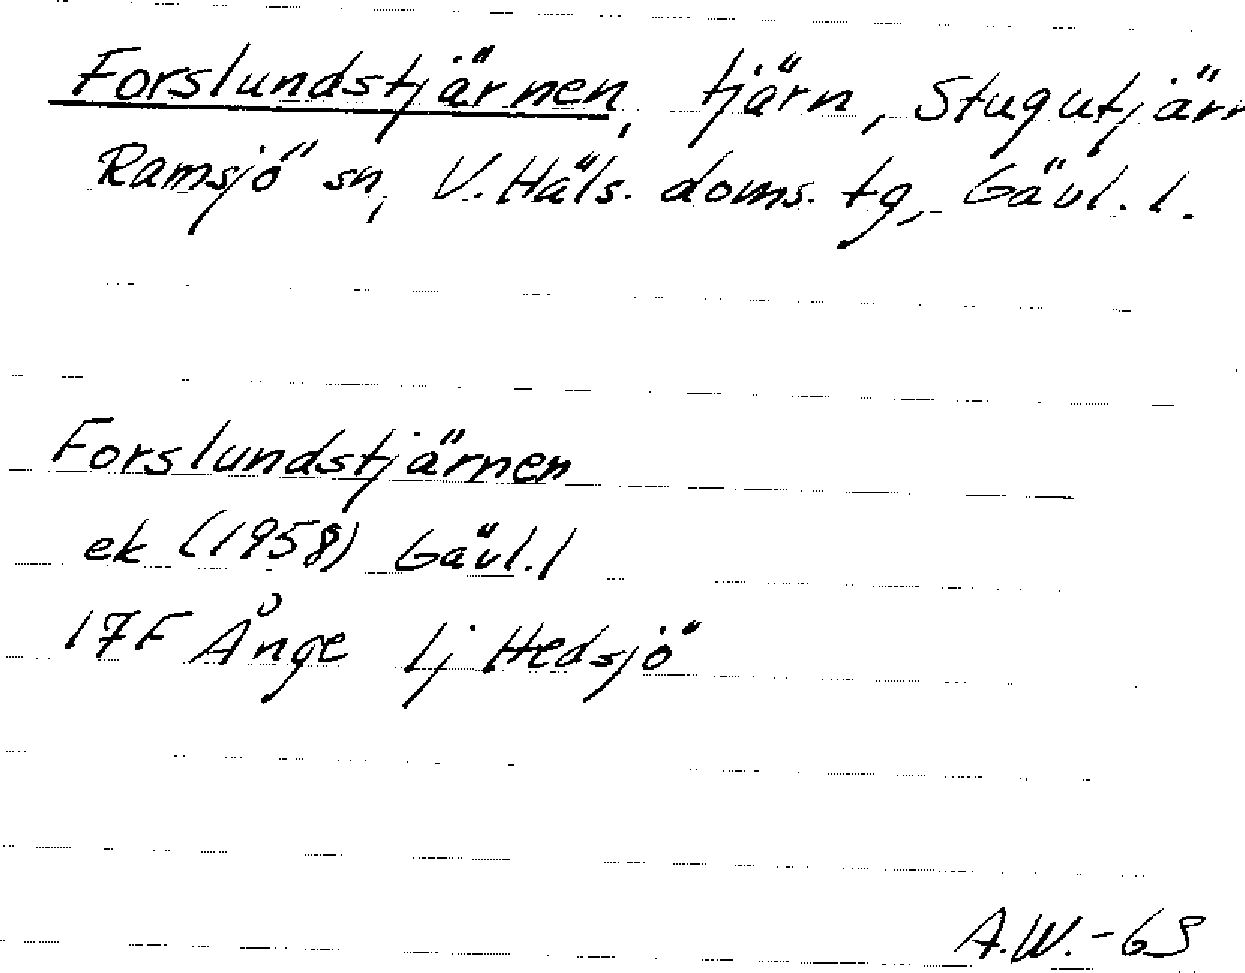 Forslundstjärnen, tjärn, Stugutjärn
Ramsjö sn, V. Häls. doms. tg, Gävl. l.
Forslundstjärnen
ek (1958) Gävl. l
17F Ånge 1j Hedsjö
A.W.-63